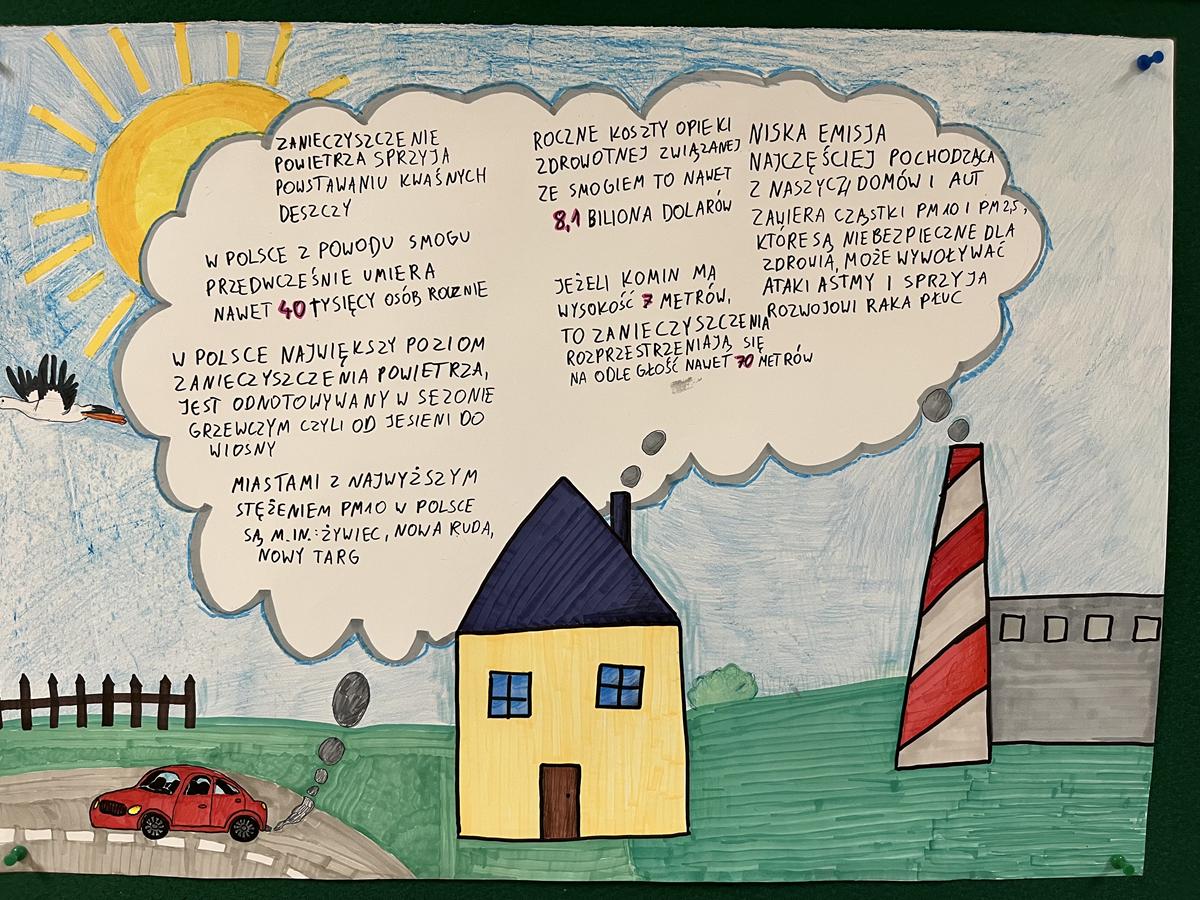 ZANIECZYSZCZENIE
POWIETRZA SPRZYJA
POWSTAWANIU KWAŚNYCH
DESZCZY
W POLSCE Z POWODU SMOGU
PRZEDWCZEŚNIE UMIERA
NAWET 40 TYSIĘCY OSÓB ROCZNIE
W POLSCE NAJWIĘKSZY POZIOM
ZANIECZYSZCZENIA POWIETRZA,
JEST ODNOTOWYWANY W SEZONIE
GRZEWCZYM CZYLI OD JESIENI DO
WIOSNY
MIASTAMI Z NAJWYŻSZYM
STĘŻENIEM PM10 W POLSCE
SĄ M.IN.: ŻYWIEC, NOWA RUDA,
NOWY TARG
ROCZNE KOSZTY OPIEKI
ZDROWOTNEJ ZWIĄZANEJ
ZE SMOGIEM TO NAWET
8,1 BILIONA DOLARÓW
JEŻELI KOMIN MA
WYSOKOŚĆ 7 METRÓW,
TO ZANIECZYSZCZENIA
ROZPRZESTRZENIAJĄ SIĘ
NA ODLEGŁOŚĆ NAWET 70 METRÓW
NISKA EMISJA
NAJCZĘŚCIEJ POCHODZĄCA
Z NASZYCH DOMÓW I AUT
ZAWIERA CZĄSTKI PM10 I PM2,5,
KTÓRE SĄ NIEBEZPIECZNE DLA
ZDROWIA, MOŻE WYWOŁYWAĆ
ATAKI ASTMY I SPRZYJA
ROZWOJOWI RAKA PŁUC